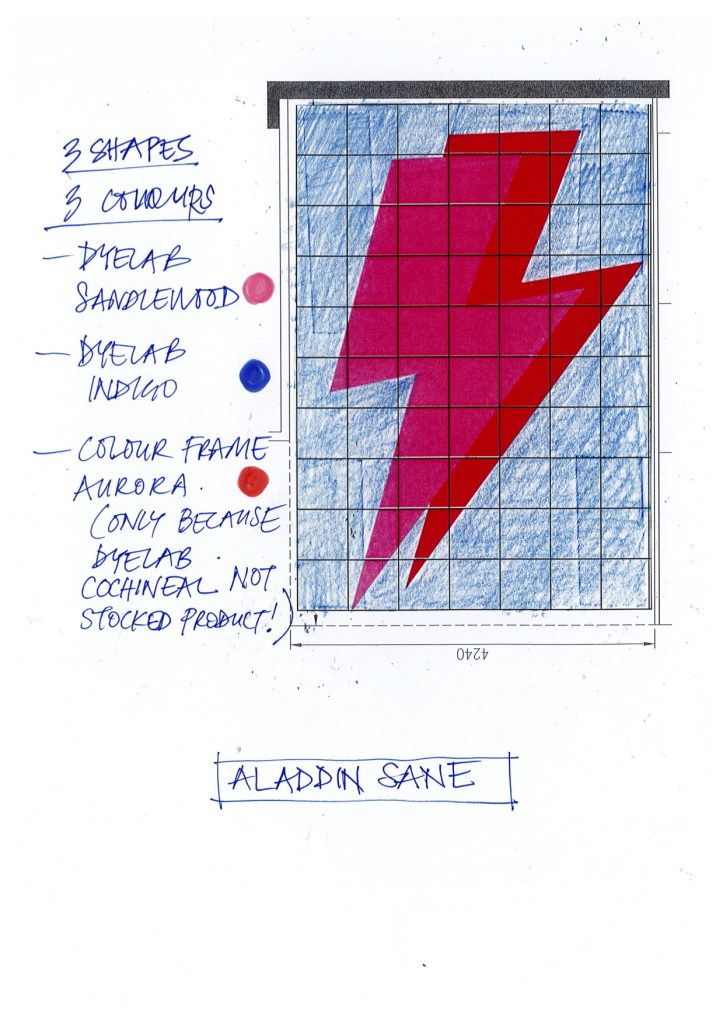 3 SHAPES
3 COLOURS
— DYELAB
SANDLEWOOD
— DYELAB
INDIGO
— COLOUR FRAME
AURORA.
(ONLY BECAUSE
DYELAB
COCHINEAL NOT
STOCKED PRODUCT!)
4240
ALADDIN SANE